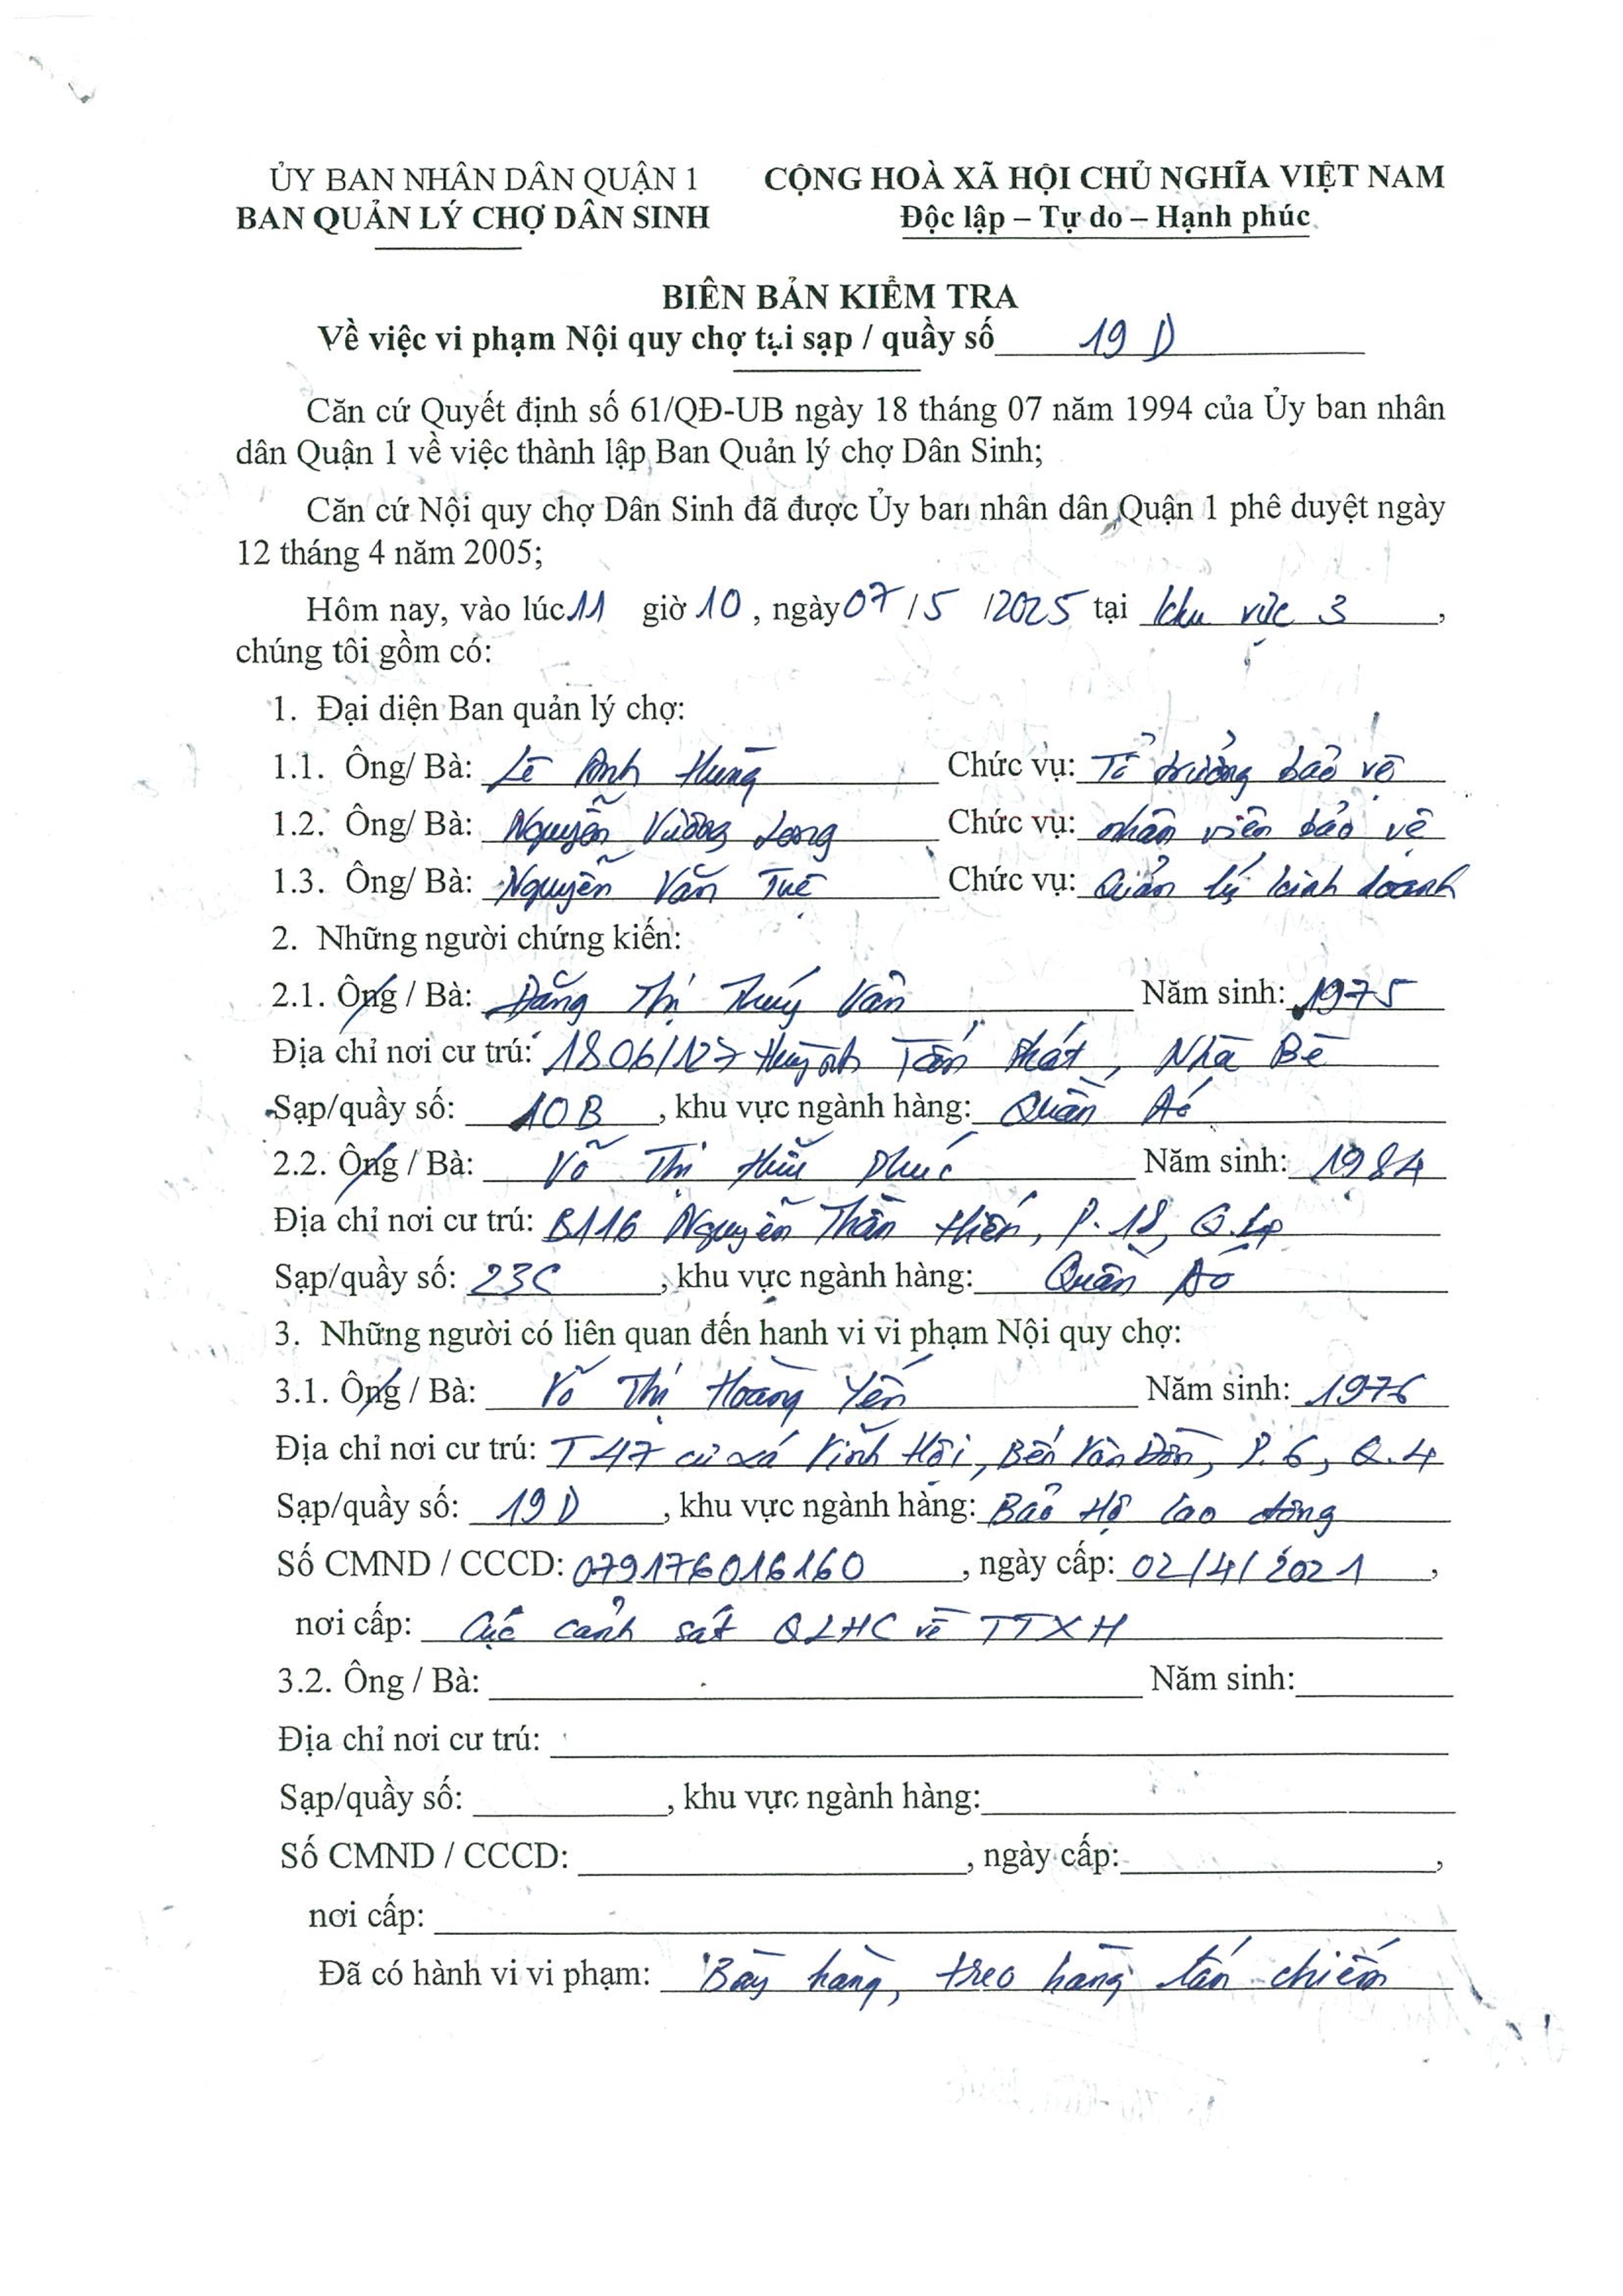 ỦY BAN NHÂN DÂN QUẬN 1
BAN QUẢN LÝ CHỢ DÂN SINH
CỘNG HOÀ XÃ HỘI CHỦ NGHĨA VIỆT NAM
Độc lập – Tự do – Hạnh phúc
BIÊN BẢN KIỂM TRA
Về việc vi phạm Nội quy chợ tại sạp / quầy số 19 D
Căn cứ Quyết định số 61/QĐ-UB ngày 18 tháng 07 năm 1994 của Ủy ban nhân
dân Quận 1 về việc thành lập Ban Quản lý chợ Dân Sinh;
Căn cứ Nội quy chợ Dân Sinh đã được Ủy ban nhân dân Quận 1 phê duyệt ngày
12 tháng 4 năm 2005;
Hôm nay, vào lúc 11 giờ 10, ngày 07/5/2025 tại khu vực 3,
chúng tôi gồm có:
1. Đại diện Ban quản lý chợ:
1.1. Ông/ Bà: Lê Anh Hùng Chức vụ: Tổ trưởng bảo vệ
1.2. Ông/ Bà: Nguyễn Vương Long Chức vụ: nhân viên bảo vệ
1.3. Ông/ Bà: Nguyễn Văn Tuê Chức vụ: Quản lý kinh doanh
2. Những người chứng kiến:
2.1. Ông / Bà: Đặng Thị Thuý Vân Năm sinh: 1975
Địa chỉ nơi cư trú: 1806/127 Huỳnh Tấn Phát, Nhà Bè
Sạp/quầy số: 10B, khu vực ngành hàng: Quần Áo
2.2. Ông / Bà: Võ Thị Hữu Phúc Năm sinh: 1984
Địa chỉ nơi cư trú: B116 Nguyễn Thần Hiến, P.18, Q.4
Sạp/quầy số: 23C, khu vực ngành hàng: Quần Áo
3. Những người có liên quan đến hanh vi vi phạm Nội quy chợ:
3.1. Ông / Bà: Võ Thị Hoàng Yến Năm sinh: 1976
Địa chỉ nơi cư trú: T47 cư xá Vĩnh Hội, Bến Vân Đồn, P.6, Q.4
Sạp/quầy số: 19D, khu vực ngành hàng: Bảo Hộ lao động
Số CMND / CCCD: 079176016160, ngày cấp: 02/4/2021,
nơi cấp: Cục cảnh sát QLHC về TTXH
3.2. Ông / Bà: Năm sinh:
Địa chỉ nơi cư trú:
Sạp/quầy số: , khu vực ngành hàng:
Số CMND / CCCD: , ngày cấp: ,
nơi cấp:
Đã có hành vi vi phạm: Bày hàng, treo hàng lấn chiếm